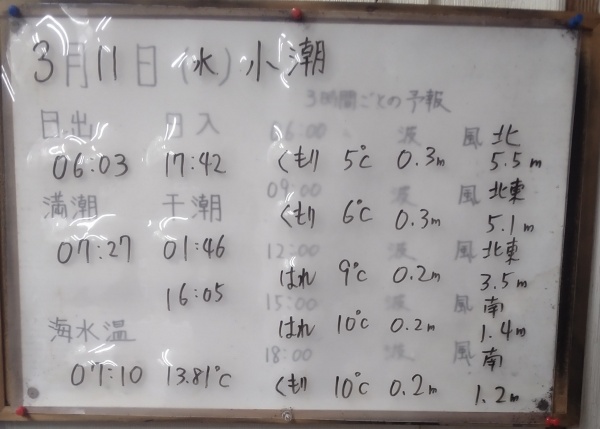 3月11日(水)小潮
3時間ごとの予報
日出 日入 06:00 波 風 北
06:03 17:42 くもり 5℃ 0.3m 5.5m
満潮 干潮 09:00 波 風 北東
くもり 6℃ 0.3m 5.1m
07:27 01:46 12:00 波 風 北東
16:05 はれ 9℃ 0.2m 3.5m
15:00 波 風 南
海水温 はれ 10℃ 0.2m 1.4m
18:00 波 風 南
07:10 13.81℃ くもり 10℃ 0.2m 1.2m